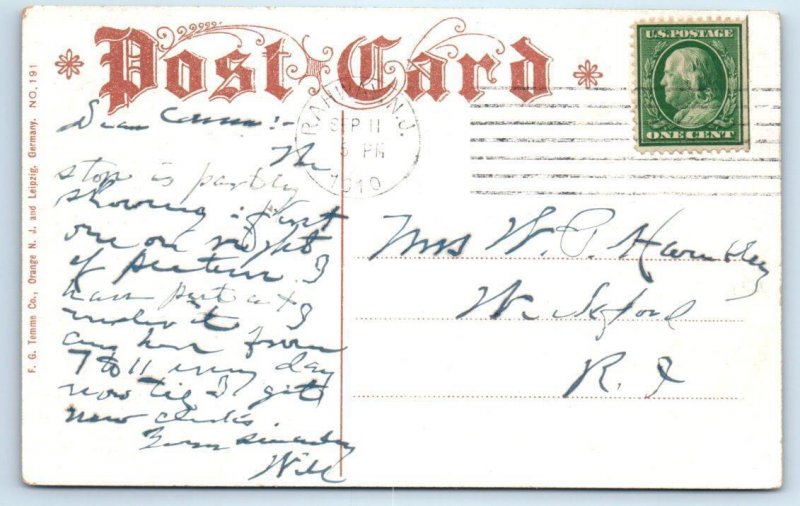 Post Card
F. G. Temme Co., Orange N. J. and Leipzig, Germany. NO. 191
U.S. POSTAGE
ONE CENT
RAHWAY, N.J.
SEP 11
5 PM
1910
Dear
My
stop is partly
showing first
one on right
of picture. I
have put a x
under it I
am here from
7 to 11 every day
now till I get
new clerks
Yours Sincerely
Will
Mrs W. P.
Wickford
R. I